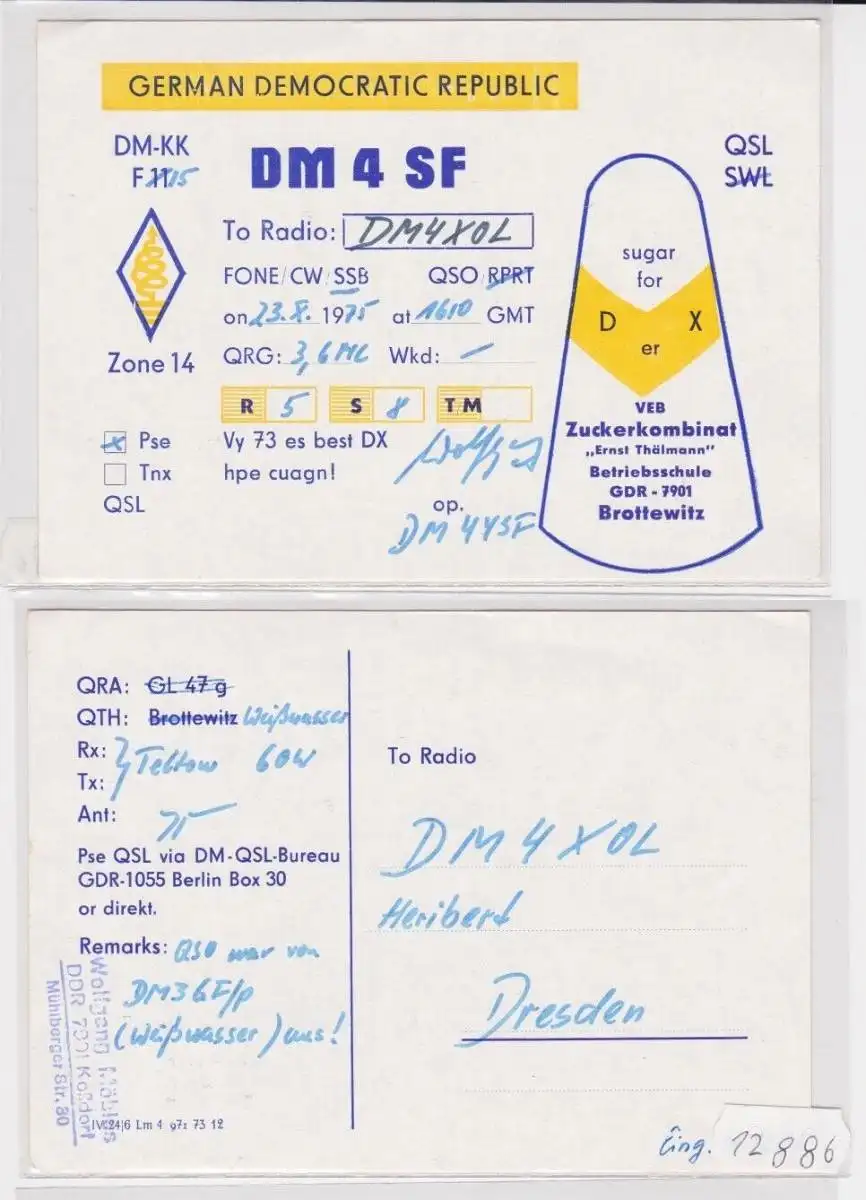 GERMAN DEMOCRATIC REPUBLIC
DM-KK
F 11 15
DM 4 SF
QSL
SWL
To Radio: DM4XOL
FONE/CW/SSB QSO/RPRT
on 23.X. 1975 at 1610 GMT
QRG: 3,6 MC Wkd: –
Zone 14
R 5 S 8 TM
x Pse
Tnx
QSL
Vy 73 es best DX
hpe cuagn!
Wolfgang
op.
DM4YSF
sugar
for
D X
er
VEB
Zuckerkombinat
„Ernst Thälmann"
Betriebsschule
GDR - 7901
Brottewitz
QRA: GL 47 g
QTH: Brottewitz Weißwasser
Rx:
Tx:
Teltow 60W
Ant:
Pse QSL via DM-QSL-Bureau
GDR-1055 Berlin Box 30
or direkt.
Remarks: QSO war von
DM3GF/p
(Weißwasser) aus!
Wolfgang
DDR 7901 Koßdorf
Mühlberger Str. 80
IV 24|6 Lm 4 97z 73 12
To Radio
DM4XOL
Heribert
Dresden
Eing. 12886